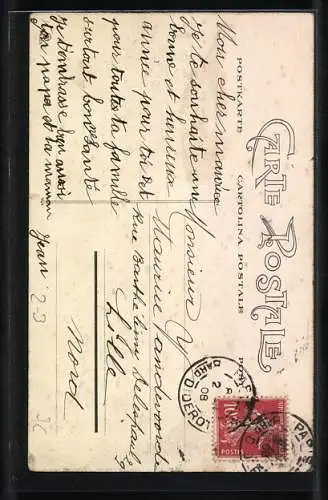 POSTKARTE
CARTOLINA POSTALE
CARTE POSTALE
Mon cher maurice
Je te souhaite une
bonne et heureuse
année pour toi et
pour toute ta famille
surtout bonne santé
Je t'embrasse bien ainsi
que papa et ta maman
Jean
Monsieur
Maurice Vandewoorde
Rue Barthélémy Delespaul
Lille
Nord
2-3
GARE D. DE
08
POSTES
10
PARIS